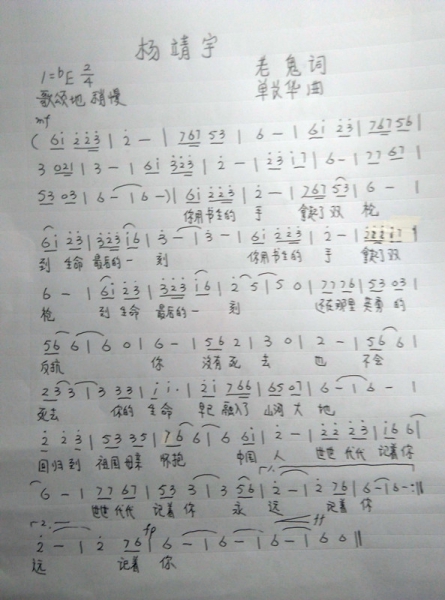 杨靖宇
1=bE 2/4 老鬼词
歌颂地 稍慢 单以华曲
mf
(6i 223 | 2 — | 767 53 | 6 — | 6i 23 | 767 56 |
3 021 | 3 — | 6i 323 | 2 — | 23 i7 | 6 — | 77 67 |
53 03 | 6 — | 6 —) | 6i 223 | 2 — | 767 53 | 6 — |
你用书生的 手 拿起了双 枪
6i 23 | 323 i6 | 3 — | 3 — | 6i 223 | 2 — | 222 i7 |
到生命 最后的一 刻 你用书生的 手 拿起了双
6 — | 6i 23 | 323 i6 | 2 5 | 5 0 | 77 76 | 53 03 |
枪 到生命 最后的一 刻 还在那里 英勇的
56 6 | 6 0 | 6 — | 56 2 | 3 0 | 2 — | 56 6 |
反抗 你 没有死 去 也 不会
23 3 | 3 33 | i i· | 2i 766 | 65 07 | 6 — | 6 — |
死去 你的 生命 早已融入了 山河大 地
2 23 | 53 35 | 76 6 | 6 6i | 2 — | 22 23 | i6 6 |
回归到 祖国母亲 怀抱 中国 人 世世代代 记着你
6 — | 77 67 | 53 3 | 3 56 | 2 — | 2 76 | 6 — | 6 — :||
世世代代 记着你 永 远 记着 你
2 — | 2 76 | 6 — | 6 — | 6 — | 6 — | 6 0 ||
远 记着 你